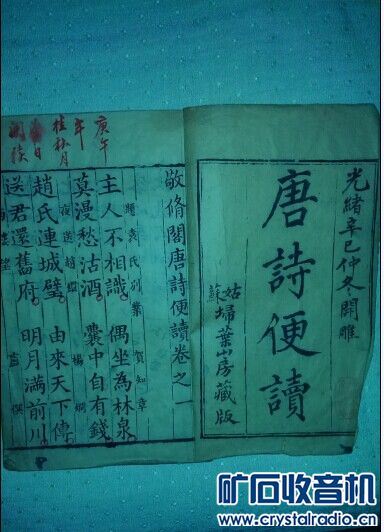 光緒辛巳仲冬開雕
唐詩便讀
姑蘇埽葉山房藏版
庚午
年
桂秋月
日
敬脩閣唐詩便讀卷之一
題袁氏別業 賀知章
主人不相識 偶坐為林泉
莫漫愁沽酒 囊中自有錢
夜送趙縱 楊炯
趙氏連城璧 由來天下傳
送君還舊府 明月滿前川
矿石收音机
www.crystalradio.cn